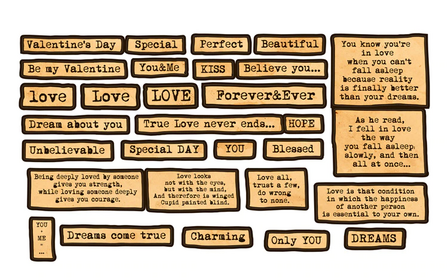 Valentine's Day
Special
Perfect
Beautiful
Be my Valentine
You&Me
KISS
Believe you...
love
Love
LOVE
Forever&Ever
You know you're
in love
when you can't
fall asleep
because reality
is finally better
than your dreams.
Dream about you
True Love never ends...
HOPE
Unbelievable
Special DAY
YOU
Blessed
As he read,
I fell in love
the way
you fall asleep
slowly, and then
all at once...
Being deeply loved by someone
gives you strength,
while loving someone deeply
gives you courage.
Love looks
not with the eyes,
but with the mind,
And therefore is winged
Cupid painted blind.
Love all,
trust a few,
do wrong
to none.
Love is that condition
in which the happiness
of another person
is essential to your own.
YOU
-
ME
-
...
Dreams come true
Charming
Only YOU
DREAMS